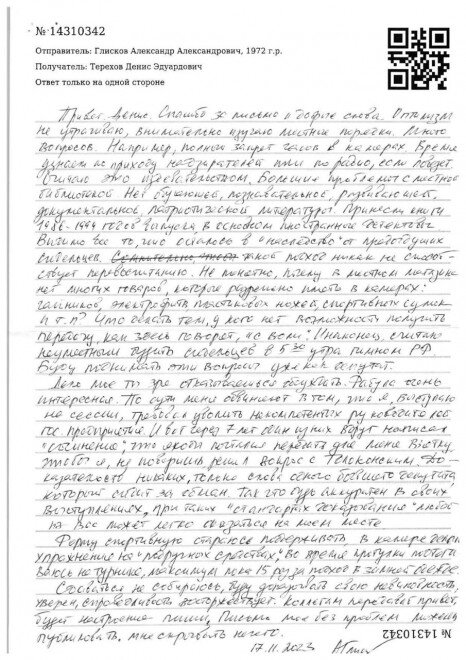 № 14310342
Отправитель: Глисков Александр Александрович, 1972 г.р.
Получатель: Терехов Денис Эдуардович
Ответ только на одной стороне
Привет Денис. Спасибо за письмо и добрые слова. Оптимизм
не утрачиваю, внимательно изучаю местные порядки. Много
вопросов. Например, полный запрет часов в камерах. Время
узнаем по приходу надзирателей или по радио, если повезет.
Считаю это издевательством. Большие проблемы с местной
библиотекой. Нет обучающей, познавательной, развивающей,
документальной, патриотической литературы! Принесли книги
1986-1994 годов выпуска, в основном иностранные детективы.
Видимо все то, что осталось в "наследство" от предыдущих
сидельцев. такой подход никак не способ-
ствует перевоспитанию. Не понятно, почему в местном магазине
нет многих товаров, которые разрешено иметь в камерах:
кипятильников, электробритв пластиковых ножей, спортивных сумок
и т.п? Что делать тем, у кого нет возможности получить
передачу, как здесь говорят, "с воли". И наконец, считаю
неуместным будить сидельцев в 5 30 утра гимном РФ
Буду поднимать эти вопросы уже как депутат.
Дело мое ты зря отказываешься обсуждать. Фабула очень
интересная. По сути меня обвиняют в том, что я, выступая
на сессии, требовал уволить некомпетентных руководителей
гос предприятия. И вот через 7 лет один из них вдруг написал
"сочинение", что якобы пытался передать для меня взятку
чтобы я, не поверишь, решил вопрос с Толоконским. До
казательств никаких, только слова одного бывшего депутата,
который сидит за обман. Так что будь аккуратен в своих
выступлениях, при таких "стандартах доказывания" любой
из вас может легко оказаться на моем месте
Форму спортивную стараюсь поддерживать в камере делаю
упражнения на "подручных средствах", во время прогулки
на турнике, максимум пока 15 раз за подход в зимней одежде.
Сдаваться не собираюсь, буду доказывать свою невиновность,
уверен, справедливость восторжествует. Коллегам передавай привет,
будет настроение пиши, Письма мои без проблем можешь
публиковать. мне скрывать нечего.
17.11.2023
№ 14310342